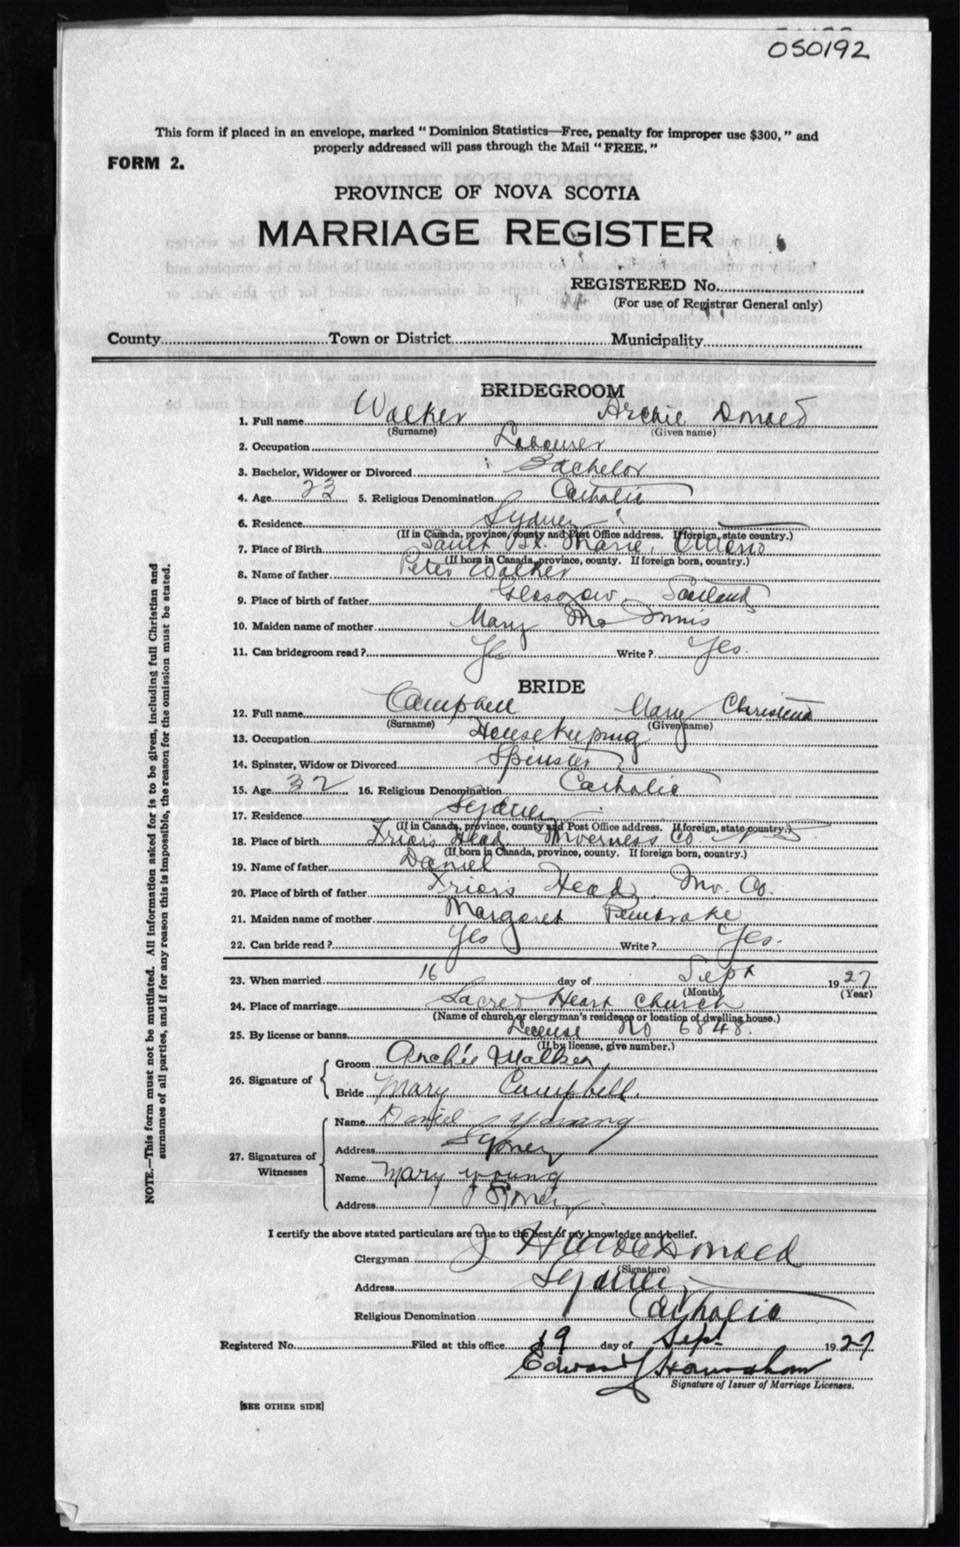 050192
This form if placed in an envelope, marked "Dominion Statistics—Free, penalty for improper use $300," and
properly addressed will pass through the Mail "FREE."
FORM 2.
PROVINCE OF NOVA SCOTIA
MARRIAGE REGISTER
REGISTERED No.
(For use of Registrar General only)
County Town or District Municipality
BRIDEGROOM
1. Full name Walker Archie Donald
(Surname) (Given name)
2. Occupation Labourer
3. Bachelor, Widower or Divorced Bachelor
4. Age 23 5. Religious Denomination Catholic
6. Residence Sydney
(If in Canada, province, county and Post Office address. If foreign, state country.)
7. Place of Birth Sault St. Marie, Ontario
(If born in Canada, province, county. If foreign born, country.)
8. Name of father Peter Walker
9. Place of birth of father Glasgow, Scotland
10. Maiden name of mother Mary McInnis
11. Can bridegroom read? Yes Write? Yes.
BRIDE
12. Full name Campbell Mary Christina
(Surname) (Given name)
13. Occupation Housekeeping
14. Spinster, Widow or Divorced Spinster
15. Age 32 16. Religious Denomination Catholic
17. Residence Sydney
(If in Canada, province, county and Post Office address. If foreign, state country.)
18. Place of birth Friar's Head, Inverness Co. N S
(If born in Canada, province, county. If foreign born, country.)
19. Name of father Daniel
20. Place of birth of father Friar's Head, Inv. Co.
21. Maiden name of mother Margaret Pembrake
22. Can bride read? Yes Write? Yes.
23. When married 16 day of Sept 1927
(Month) (Year)
24. Place of marriage Sacred Heart Church
(Name of church or clergyman's residence or location of dwelling house.)
25. By license or banns License No 6848.
(If by license, give number.)
26. Signature of
Groom Archie Walker
Bride Mary Campbell.
27. Signatures of Witnesses
Name Daniel Young
Address Sydney
Name Mary Young
Address Sydney
I certify the above stated particulars are true to the best of my knowledge and belief.
Clergyman J H MacDonald
(Signature)
Address Sydney
Religious Denomination Catholic
Registered No. Filed at this office 19 day of Sept 1927
Edward
Signature of Issuer of Marriage Licenses.
[SEE OTHER SIDE]
NOTE.—This form must not be mutilated. All information asked for is to be given, including full Christian and
surnames of all parties, and if for any reason this is impossible, the reason for the omission must be stated.